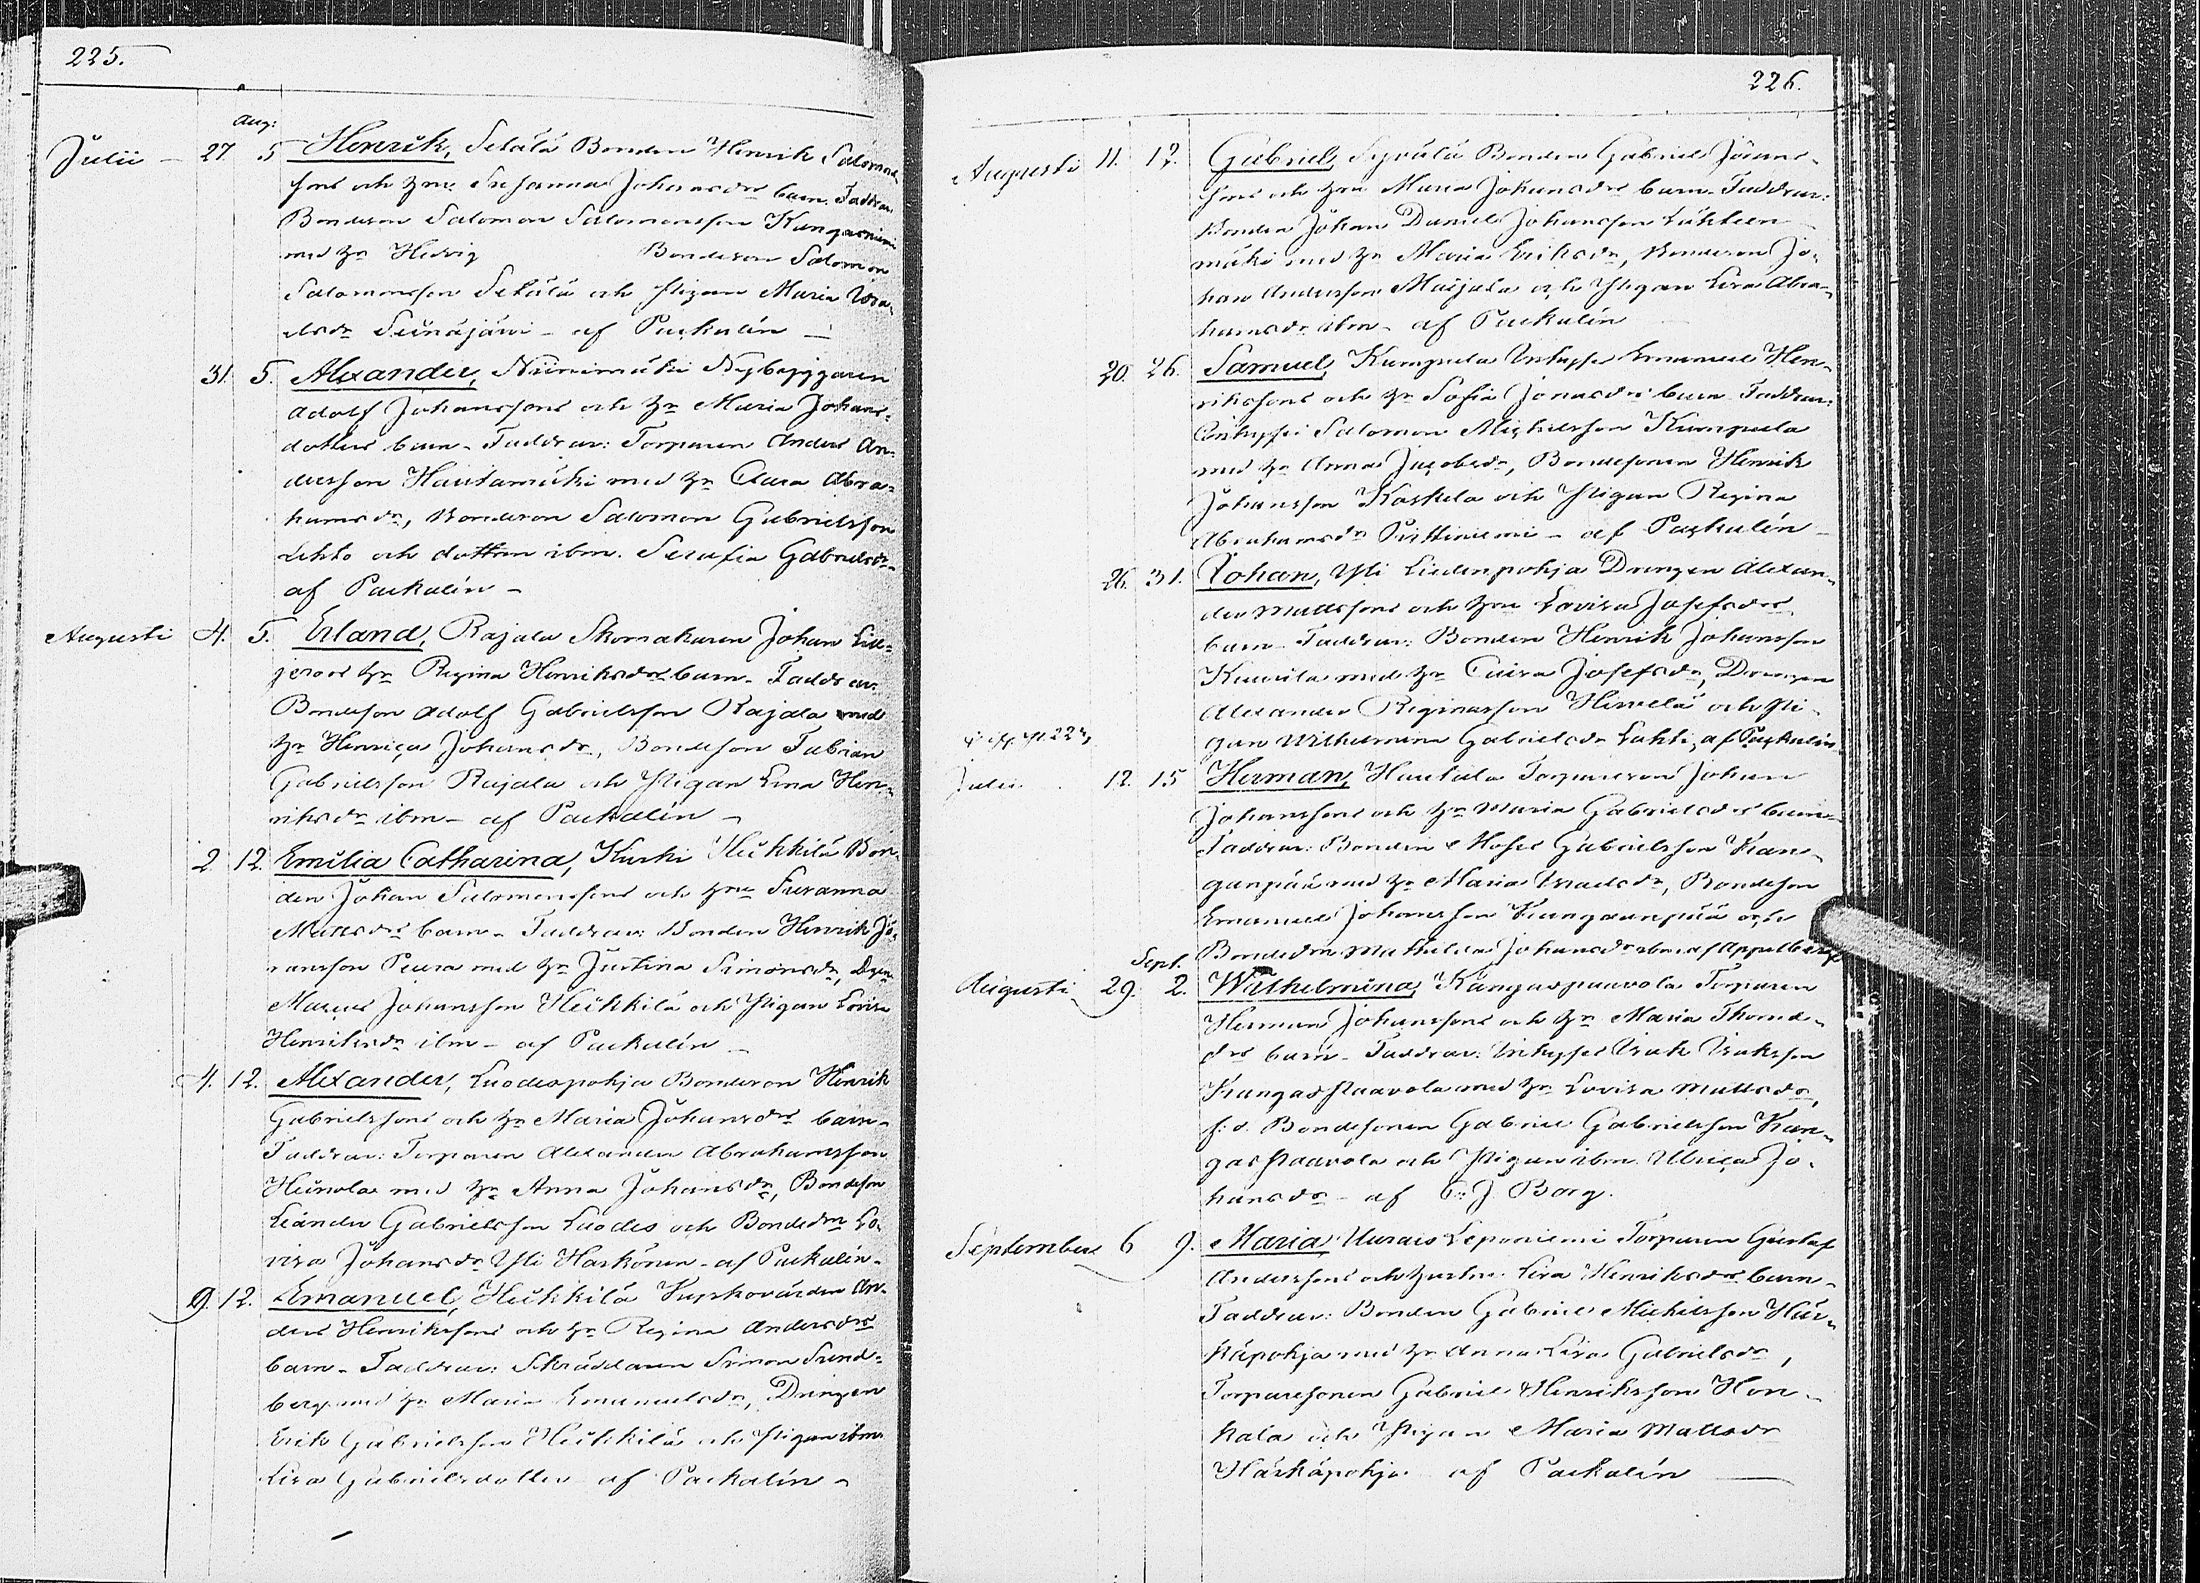 225.
Aug:
Julii — 27. 5 Henrik, Setälä Bonden Henrik Salomons
sons och hru Susanna Johansdrs barn. Faddrar
Bondeson Salomon Salomonsson Kangasniemi
med hu Hedvig Bondeson Salomon
Salomonsson Setälä och Pigan Maria Isra-
elsdr Seinäjäwi – af Packalén —
31. 5. Alexander, Niinimäki Nybyggaren
Adolf Johanssons och hu Maria Johans-
dotters barn – Faddrar: Torparen Anders An-
dersson Hautamäki med hu Clara Abra-
hamsdr, Bondeson Salomon Gabrielsson
Lehto och dottren ibm. Serafia Gabrielsdr
af Packalén –
Augusti 4. 5. Erland, Rajala Skomakaren Johan Lill-
jeroos hu Regina Henriksdrs barn – Faddrar:
Bondeson Adolf Gabrielsson Rajala med
hu Henrica Johansdr, Bondeson Fabian
Gabrielsson Rajala och Pigan Lena Hen-
riksdr ibm – af Packalén –
2. 12. Emilia Catharina, Kurki Heikkilä Bon-
den Johan Salomonssons och hru Susanna
Mattsdrs barn – Faddrar: Bonden Henrik Jö-
ransson Peura med hu Justina Simonsdr, Dren
Marcus Johansson Heikkilä och Pigan Lovisa
Henriksdr ibm – af Packalén –
4. 12. Alexander, Luodespohja Bondeson Henrik
Gabrielssons och hu Maria Johansdrs barn –
Faddrar: Torparen Alexander Abrahamsson
Heinola med hu Anna Johansdr, Bondeson
Leander Gabrielsson Luodes och Bondedrn Lo-
visa Johansdr Yli Harkönen – af Packalén –
9. 12. Emanuel, Heikkilä Kyrkovärden An-
ders Henrikssons och hu Regina Andersdrs
barn – Faddrar: Skräddaren Simon Sund-
berg med hu Maria Emanuelsdr, Drängen
Erik Gabrielsson Heikkilä och Pigan ibm
Lisa Gabrielsdotter af Packalén –
226.
Augusti 11. 12. Gabriel, Syväälä Bonden Gabriel Jöans-
sons och hru Maria Johansdrs barn – Faddrar:
Bonden Johan Daniel Johansson Lähteen
mäki med hu Maria Eriksdr, Bondeson Jo-
han Andersson Maijala och Pigan Lisa Abra-
hamsdr ibm – af Packalén
20. 26. Samuel, Kumpula Inhyses Emanuel Hen-
rikssons och hu Sofia Jonasdrs barn – Faddrar:
Inhyses Salomon Michelsson Kumpula
med hu Anna Jacobsdr, Bondesonen Henrik
Johansson Koskela och Pigan Regina
Abrahamsdr Pittiniemi – af Packalén –
26. 31. Johan, Yli Liedenpohja Drengen Alexan-
der Mattssons och hru Lovisa Josefsdrs
barn – Faddrar: Bonden Henrik Johansson
med hu Caisa Josefsdr, Drengen
Alexander Reginasson Hirvelä och Pi-
gan Wilhelmina Gabrielsdr Lahti, af Packalén
Julii 12. 15 Herman, Hautala Torpareson Johan
Johanssons och hu Maria Gabrielsdrs barn –
Faddrar: Bonden Moses Gabrielsson Kan-
ganpää med hu Maria Israelsdr, Bondeson
Emanuel Johansson Kangaanpää och
Bondedrn Mathilda Johansdr ibm af Appelberg
Sept.
Augusti 29. 2. Wilhelmina, Kangaspaavola Torparen
Herman Johanssons och hu Maria Thomæ-
drs barn – Faddrar: Inhyses Isak Isaksson
Kangaspaavola med hu Lovisa Mattsdr,
f. d. Bondesonen Gabriel Gabrielsson Kan-
gaspaavola och Pigan ibm. Ulrica Jo-
hansdr – af C. J. Borg.
September 6 9. Maria, Uurais Leponiemi Torparen Gustaf
Anderssons och hustru Lisa Henriksdrs barn –
Faddrar: Bonden Gabriel Michelsson Här-
käpohja med hu Anna Lisa Gabrielsdr,
Torparesonen Gabriel Henriksson Hon-
kala och Pigan Maria Mattsdr
Härkäpohja af Packalén —